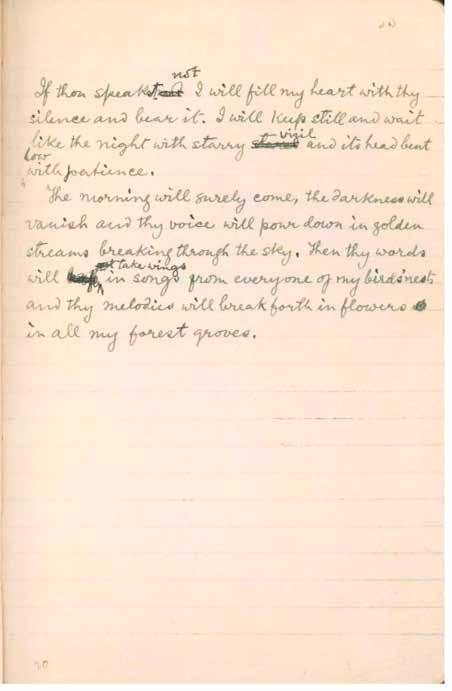 If thou speakst not I will fill my heart with thy
silence and bear it. I will keep still and wait
like the night with starry vigil and its head bent
low
with patience.
The morning will surely come, the darkness will
vanish and thy voice will pour down in golden
streams breaking through the sky. Then thy words
will take wings in songs from everyone of my birds' nests
and thy melodies will break forth in flowers
in all my forest groves.
20